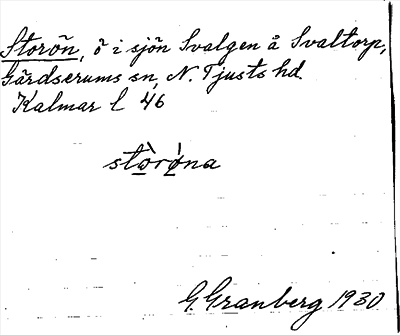 Storön, ö i sjön Svalgen å Svaltorp,
Gärdserums sn, N. Tjusts hd.
Kalmar l 46
stòrø̀na
G. Granberg 1930